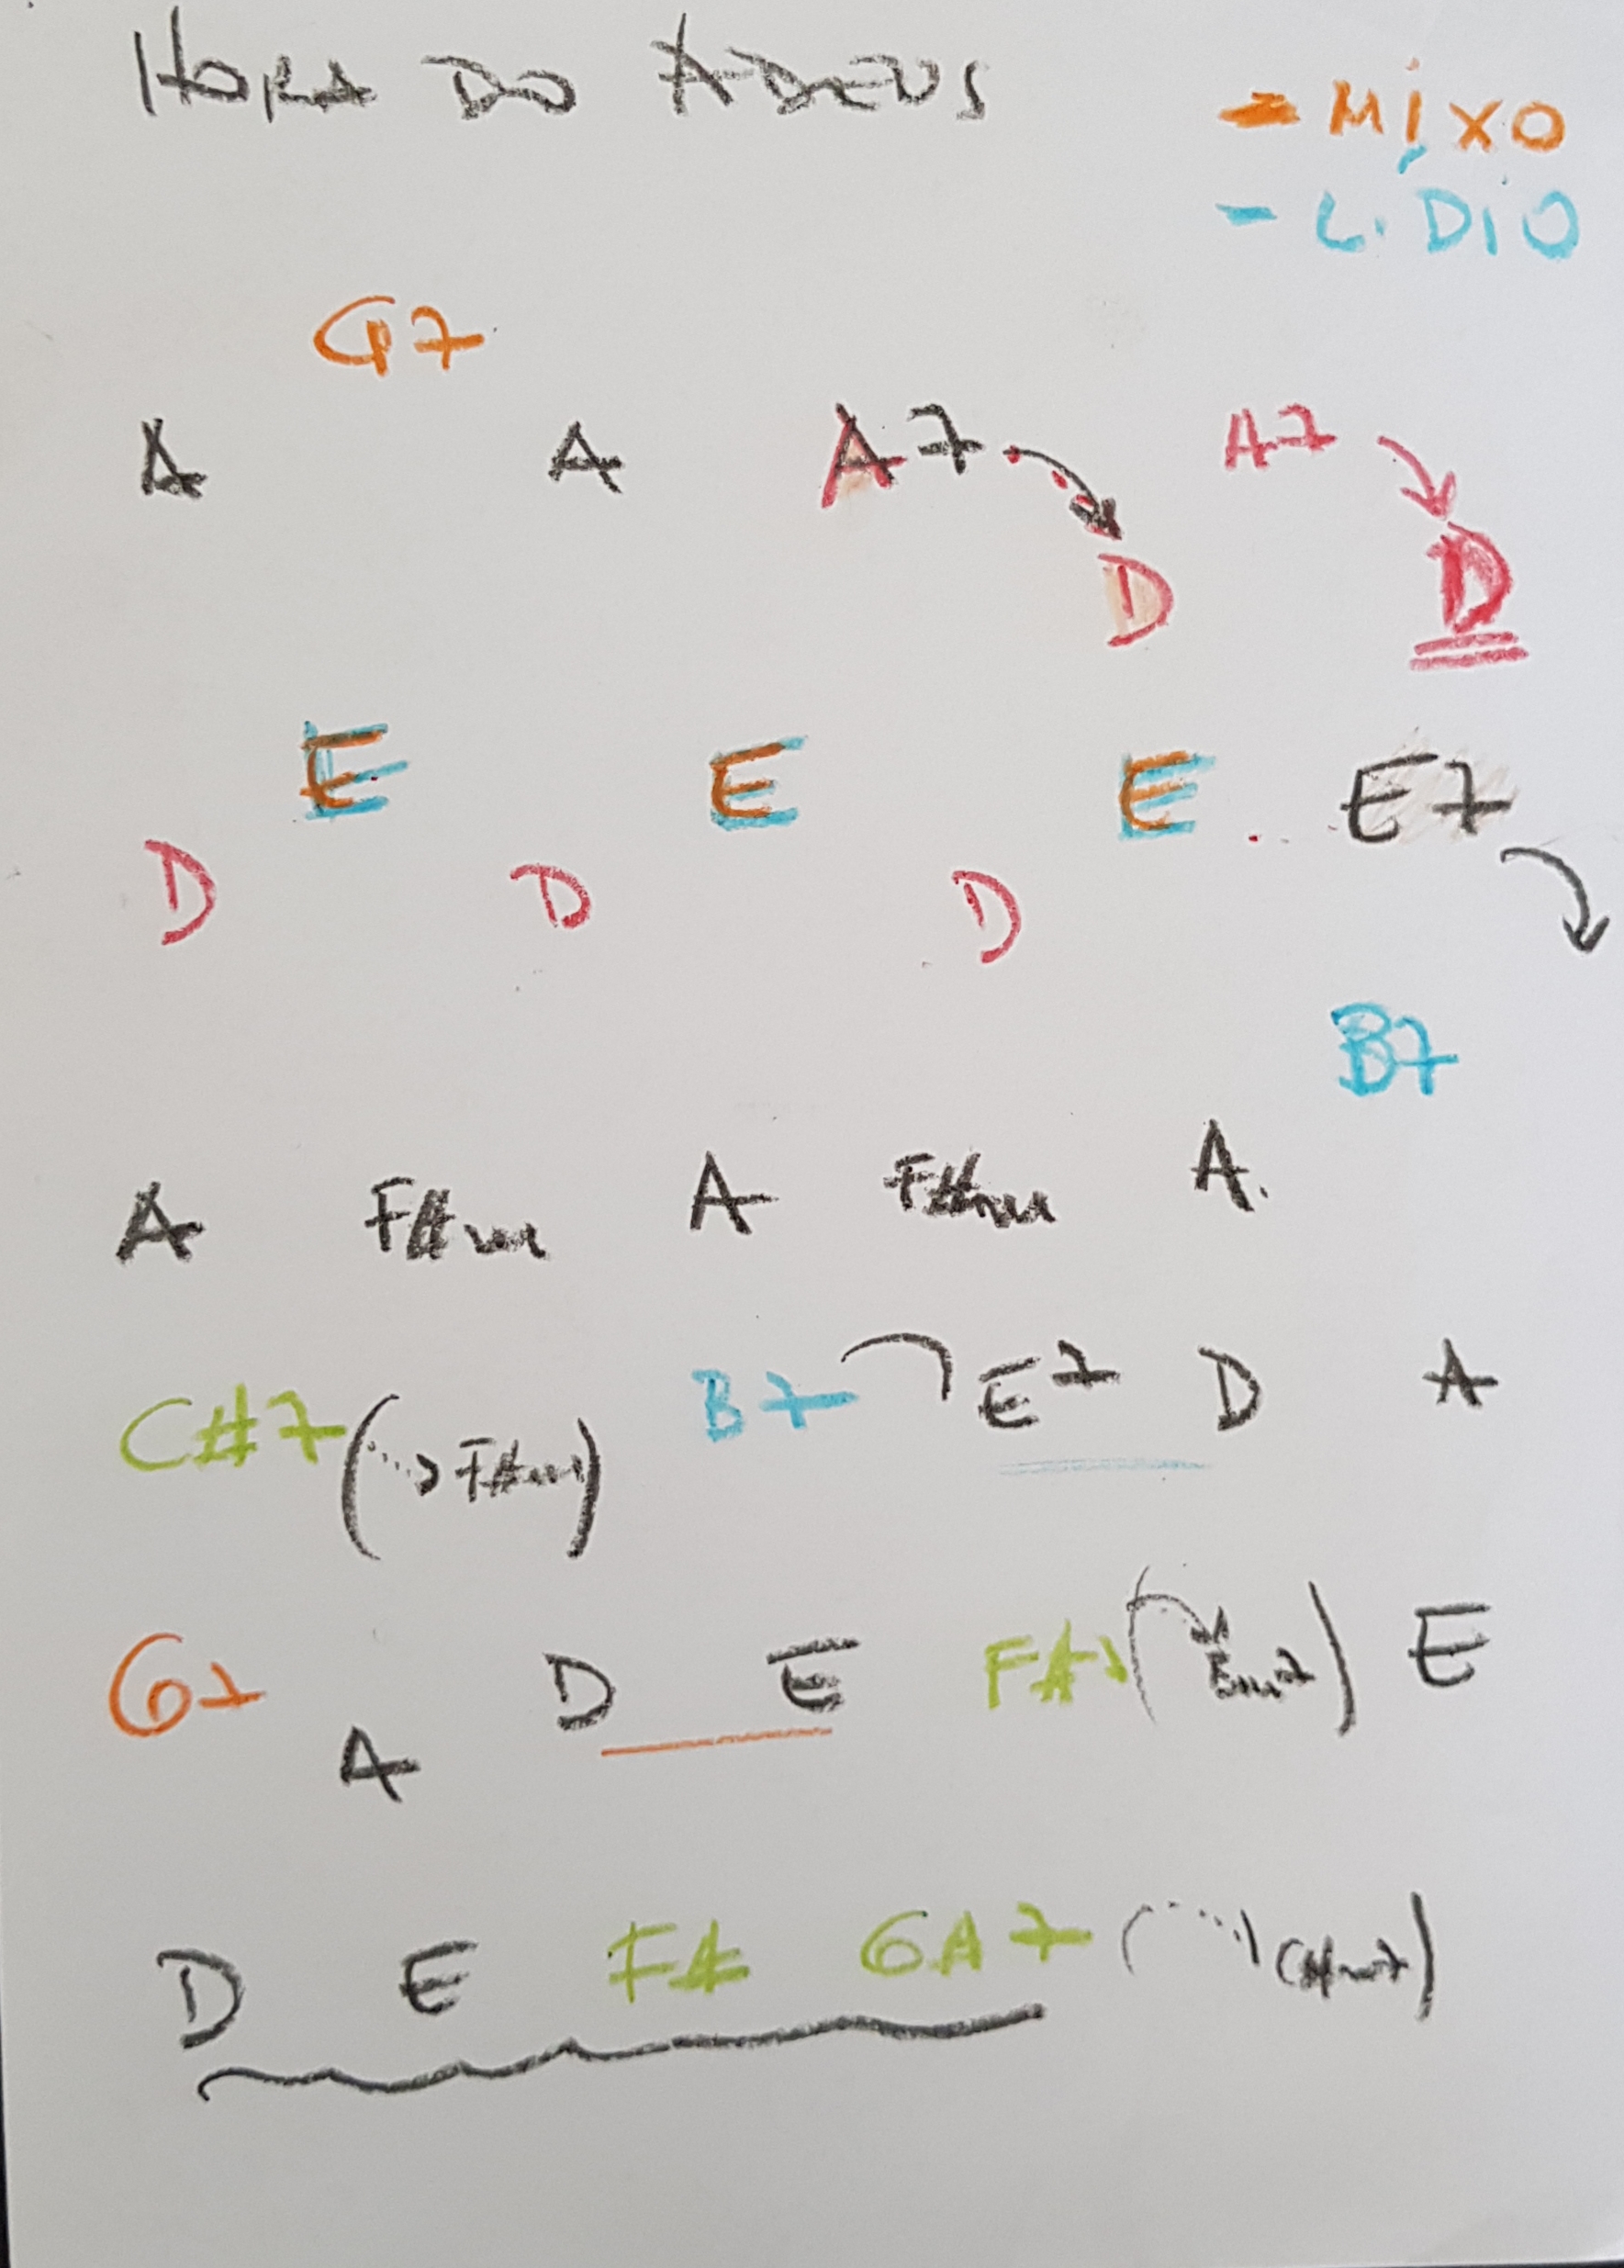 HORA DO ADEUS
- MIXO
- LÍDIO
G7
A A A7 A7
D D
E E E E7
D D D
B7
A F#m A F#m A.
C#7 (F#m) B7 E7 D A
G7 A D E F#7 (Bm7) E
D E F# G#7 (C#m7)